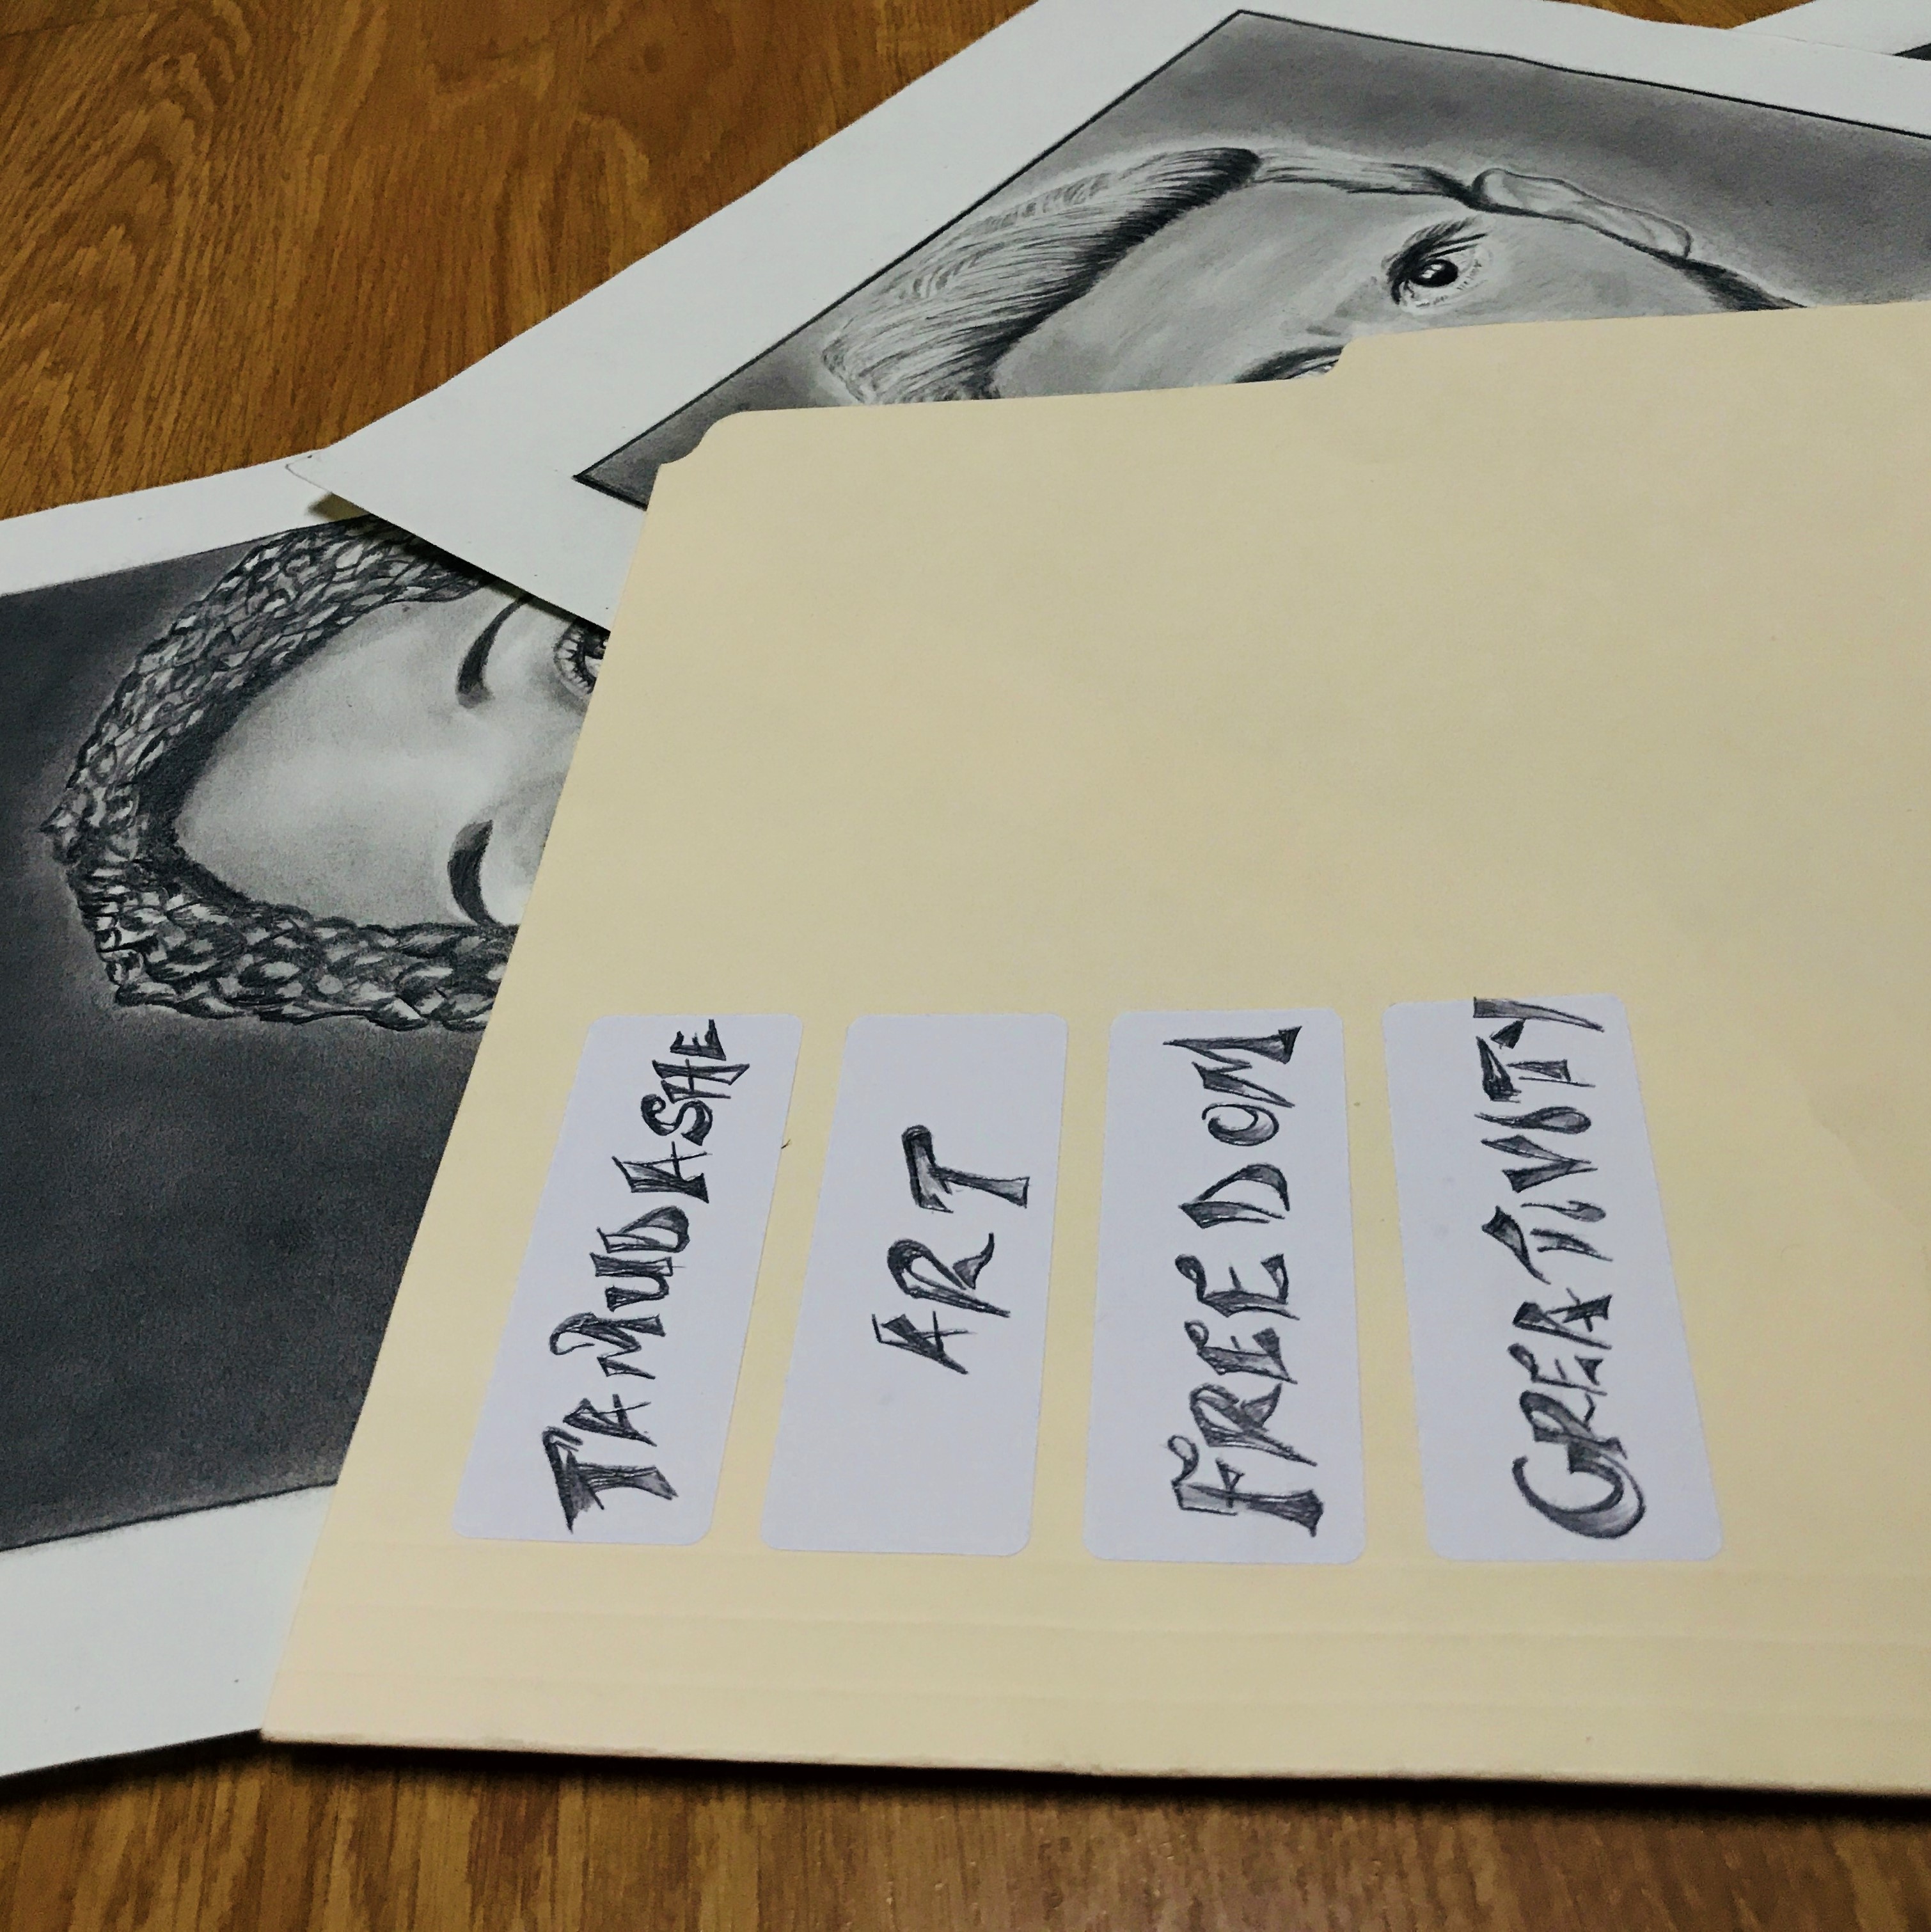 TAMUDASHE
ART
FREEDOM
CREATIVITY